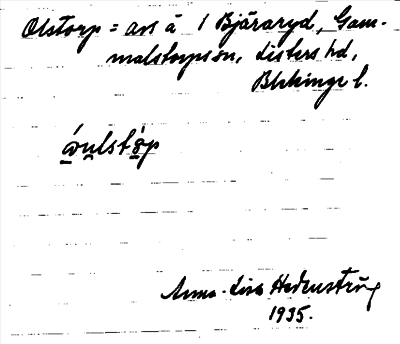 Olstorp = avs å 1 Bjäraryd, Gam-
malstorps sn, Listers hd,
Blekinge l.
ó̲u̲lstó̲p
Anna-Lisa Hedenström
1935.